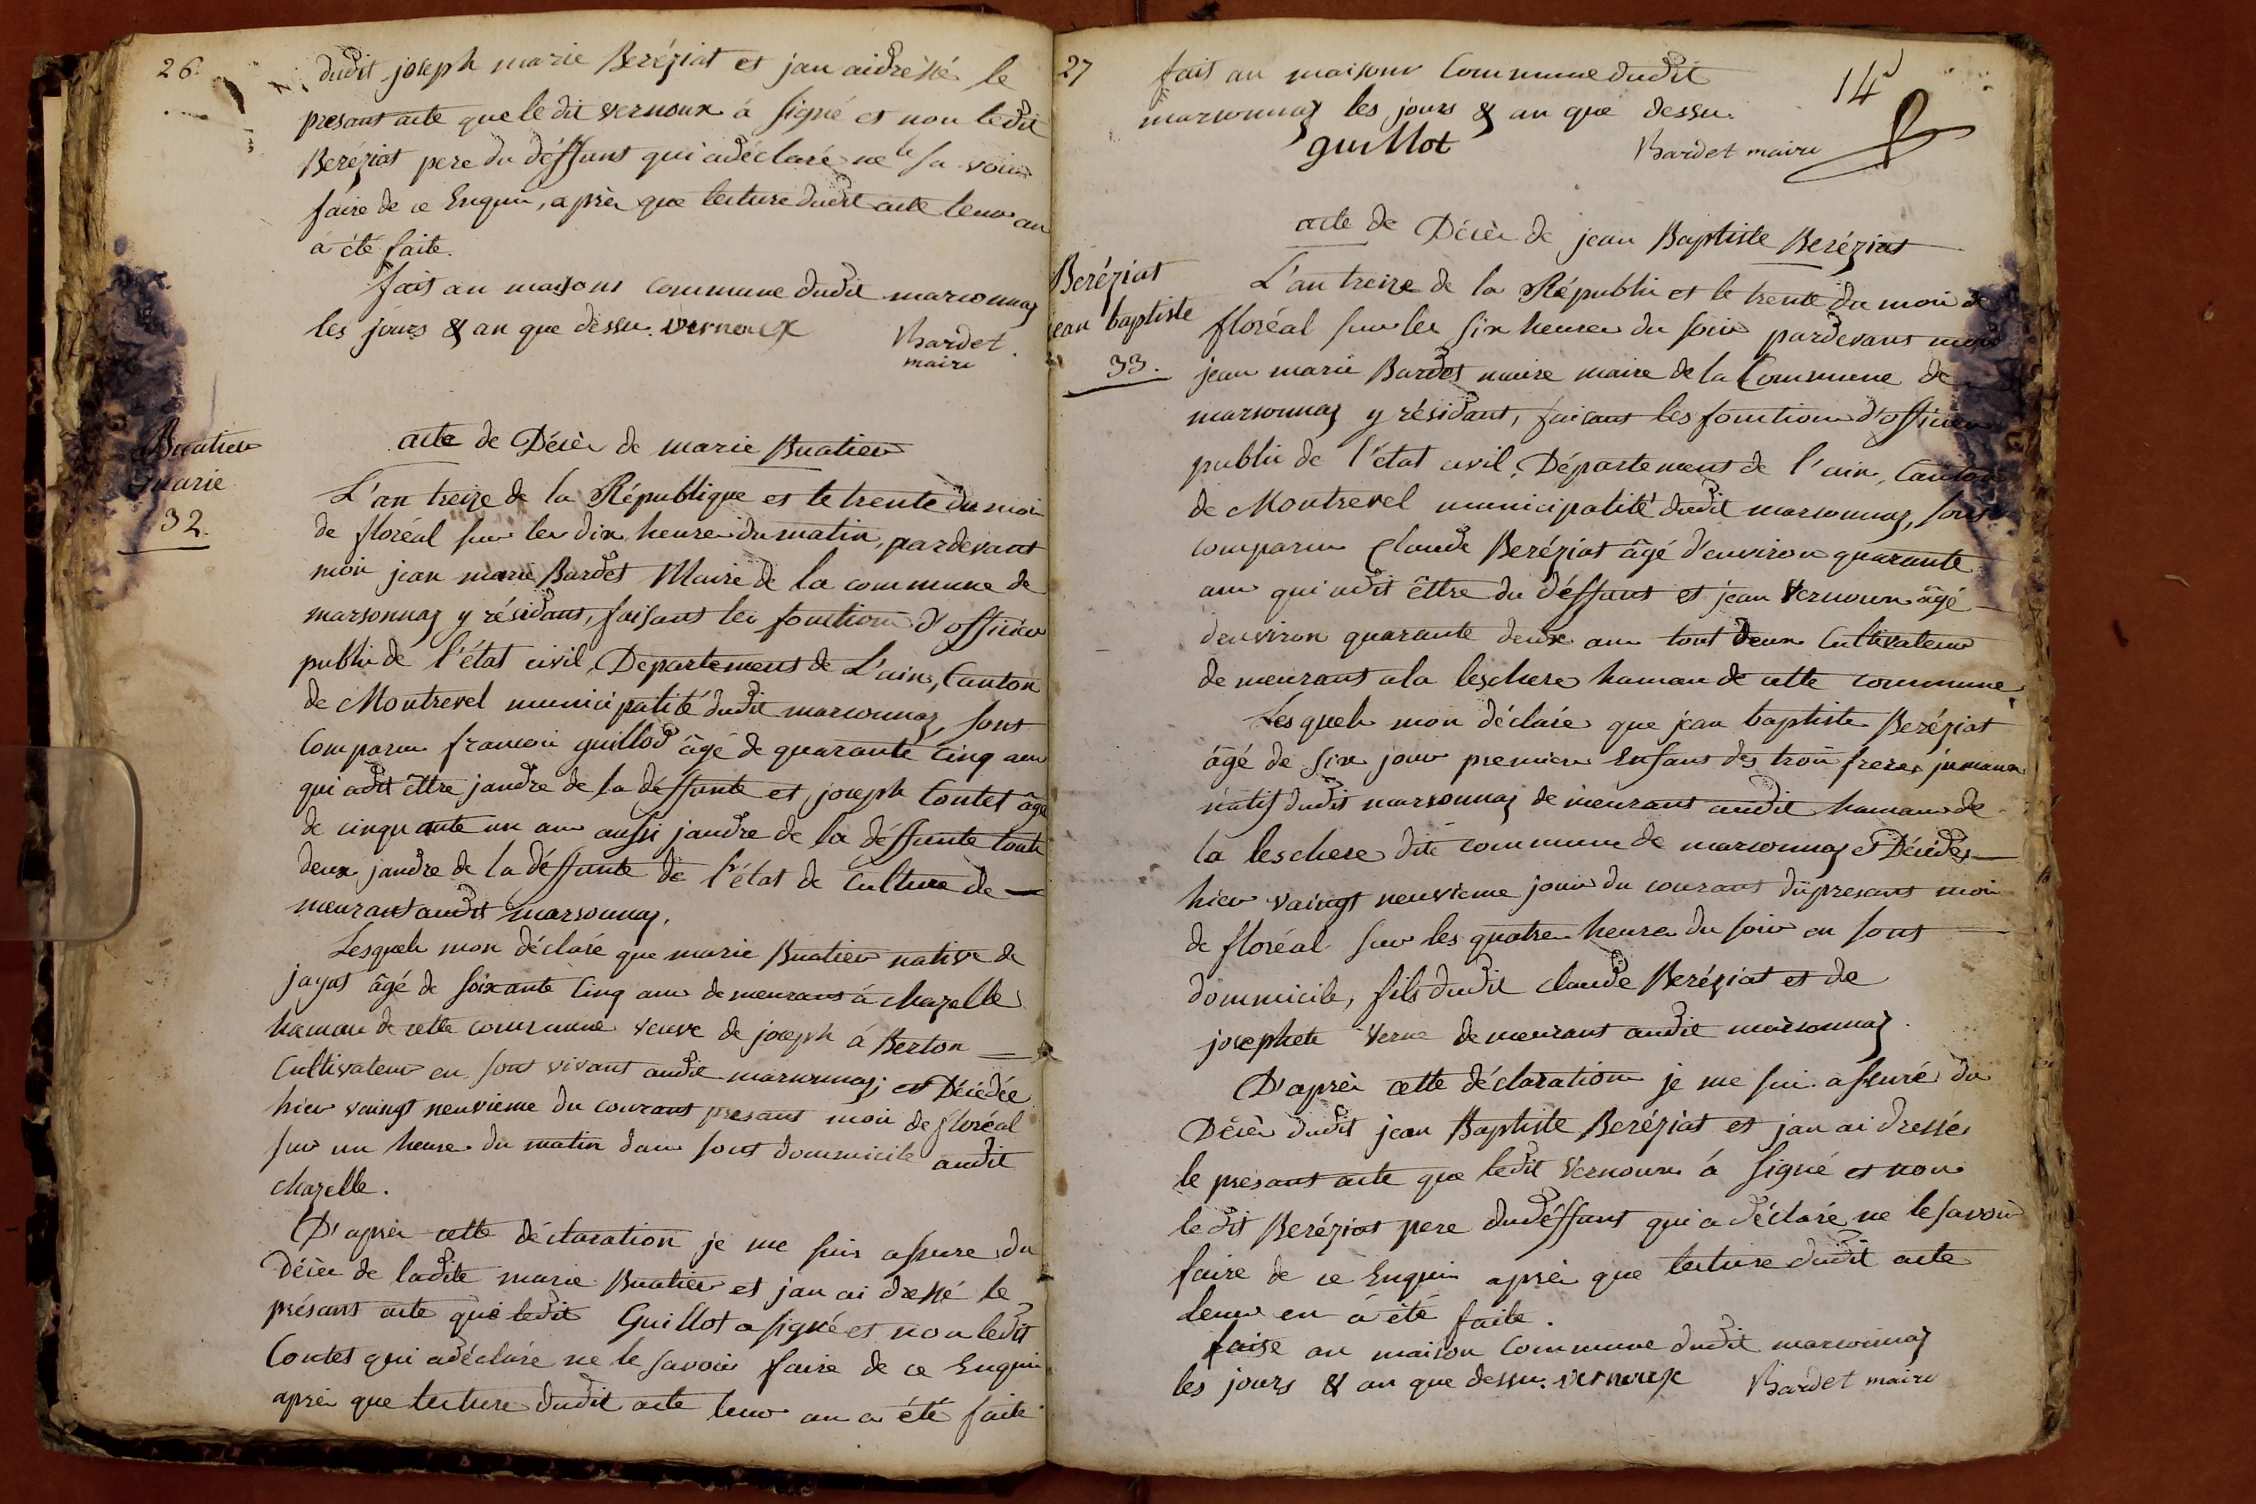 26.
dudit joseph marie Bereziat et jan aidressé le
presant acte que le dit vernoux à signé et non ledit
Bereziat pere du déffunt qui a déclaré ne le sa voir
faire de ce Enquis, après que lecture dudit acte leur an
à été faite.
fait an maisons commune dudit marsonnaz
les jours & an que dessu. vernoux Bardet
maire
Buatier
marie
32.
acte de Décès de marie Buatier
L'an treize de la République et le trente du moi
de floréal sur les dix heure du matin, pardevant
moi jean marie Bardet Maire de la commune de
marsonnaz y résidant, faisant les fonction d'officier
public de l'état civil, Departement de L'ain, Canton
de Montrevel municipalité dudit marsonnaz, sont
Comparu francoi guillod âgé de quarante cinq ans
qui adit êttre jandre de la déffunte et joseph Contet âgé
de cinquante un ans aussi jandre de la déffunte toute
deux jandre de la déffunte de l'état de Culture de
meurant audit marsonnaz.
Lesquels mon déclaré que marie Buatier native de
jayat âgé de soixante cinq ans demeurant à chazelle
hamau de cette commune veuve de joseph à Berton
Cultivateur en sont vivant audit marsonnaz, et Décédée
hier vaingt neuvieme du courant presant moi de floréal
sur un heure du matin dans sont dommicile audit
chazelle.
D'après cette déclaration je me suis assure du
Décès de ladite marie Buatier et jan ai dressé le
présant acte que ledit Guillot a signé et non ledit
Contet qui adéclaré ne le savoir faire de ce Enquis
après que lecture dudit acte leur an a été faite
27
14
fait an maisons Commune dudit
marsonnaz les jours & an que dessu.
guillot Bardet maire
acte de Décès de jean Baptiste Bereziat
Bereziat
jean baptiste
33.
L'an treize de la Républic et le trente du moi de
floréal sur les six heures du soir pardevant moi
jean marie Bardet maire maire de la Commune de
marsonnaz y résidant, faisant les fonction d'officier
public de l'état civil, Département de l'ain, Canton
de Montrevel municipalité dudit marsonnaz, sont
comparu Claude Bereziat âgé d'environ quarante
ans qui adit êttre du déffunt et jean Vernoux âgé
d'environ quarante deux ans tout deux Cultivateur
demeurant ala leschere hamau de cette commune
Lesquels mon déclaré que jean baptiste Bereziat
âgé de six jour premier Enfant des troi freres jumaux
natif dudit marsonnaz demeurant audit hamau de
la leschere dite commune de marsonnaz et Décédé
hier vaingt neuvieme jour du courant du presant moi
de floréal sur les quatre heure du soir en sont
dommicile, fils dudit claude Bereziat et de
josephete Verne demeurant audit marsonnaz.
D'après cette déclaration je me sui assuré du
Décès dudit jean Baptiste Bereziat et jan ai dressé
le présant acte que ledit Vernoux à signé et non
ledit Bereziat pere dudéffunt qui a déclaré ne le savoir
faire de ce Enquis après que lecture dudit acte
leur en à été faite.
faise an maison Commune dudit marsonnaz
les jours & an que dessu. vernoux Bardet maire